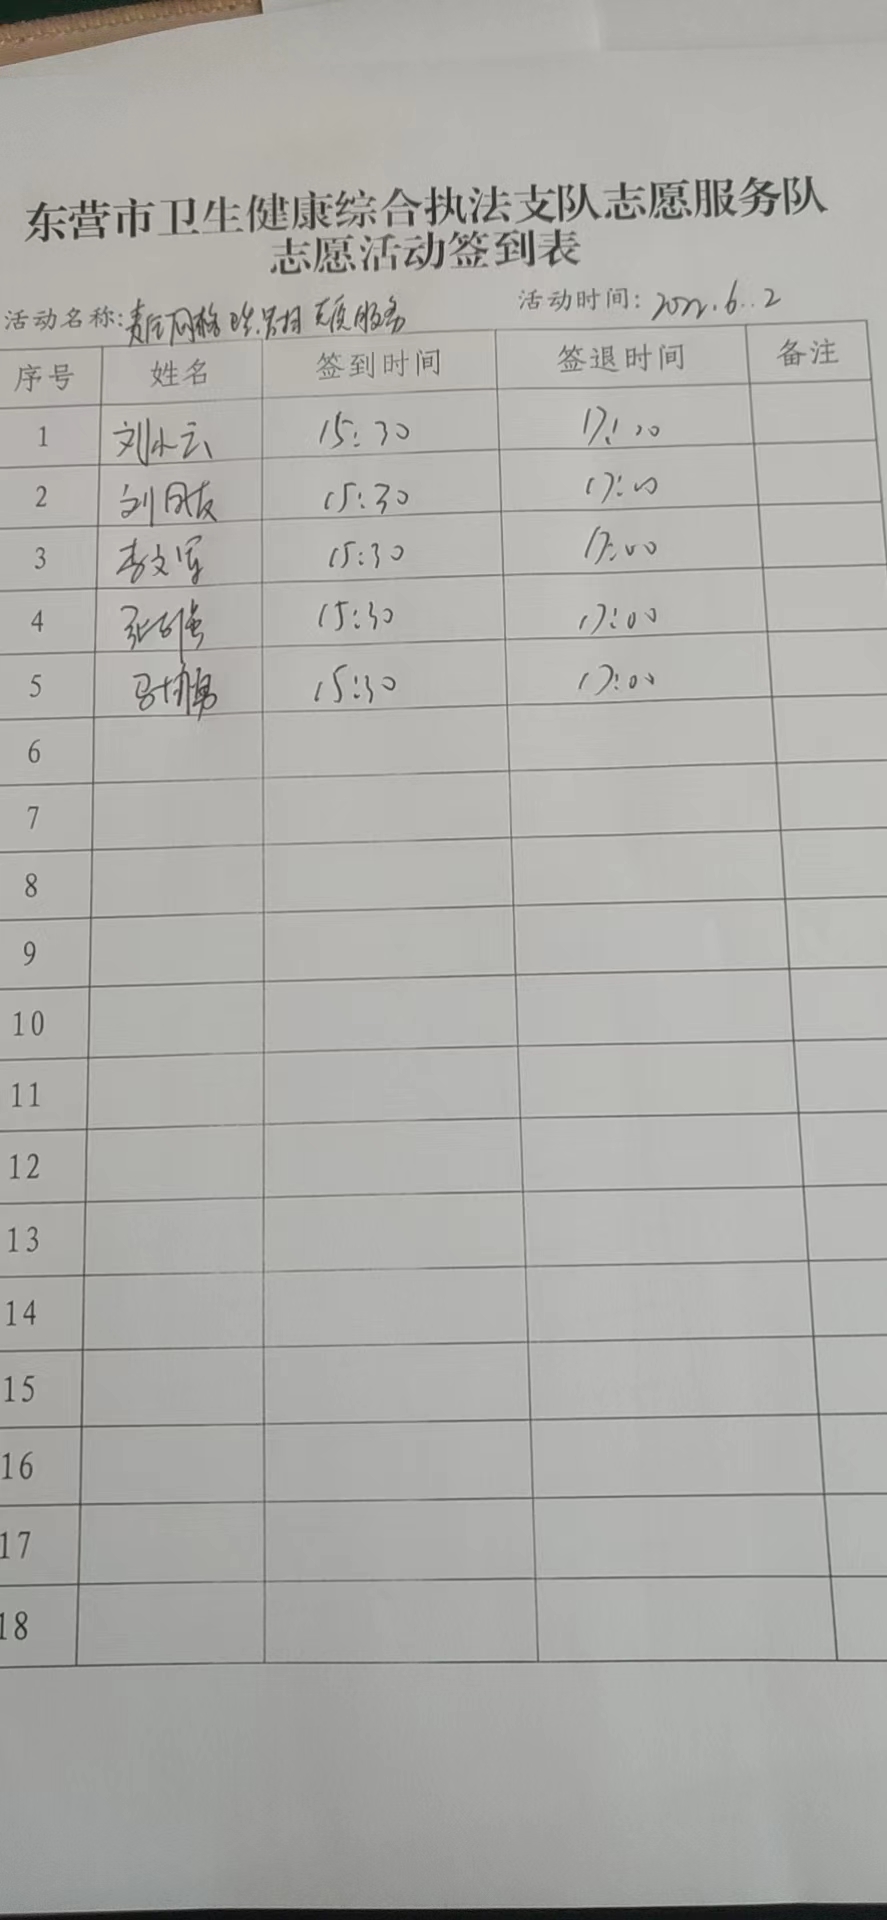 东营市卫生健康综合执法支队志愿服务队
志愿活动签到表
活动名称:责任网格 志愿服务 活动时间: 2022.6.2
序号 姓名 签到时间 签退时间 备注
1 刘小云 15:30 17:00
2 刘同友 15:30 17:00
3 李文军 15:30 17:00
4 张 强 15:30 17:00
5 马 勇 15:30 17:00
6
7
8
9
10
11
12
13
14
15
16
17
18